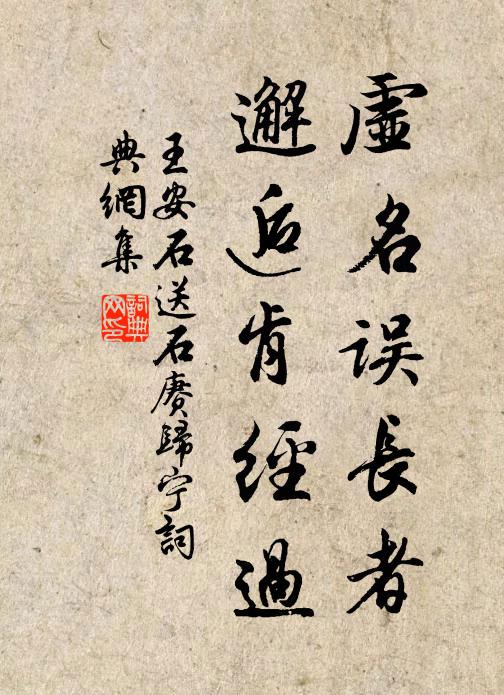 虛名誤長者
邂逅肯經過
王安石送石賡歸寧詞
典網集
詞典
网印